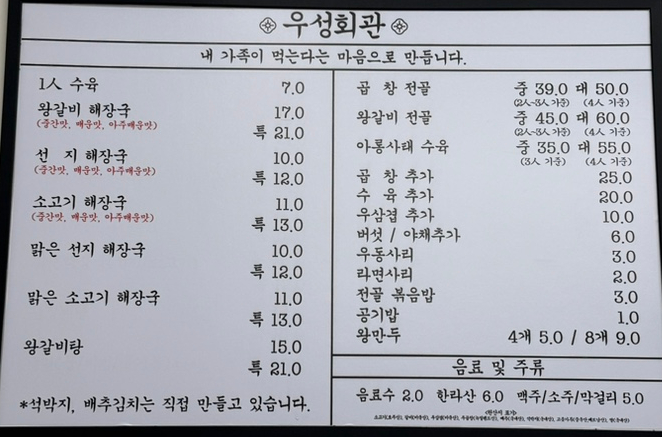 우성회관
내 가족이 먹는다는 마음으로 만듭니다.
1人 수육 7.0
왕갈비 해장국 17.0
(중간맛, 매운맛, 아주매운맛)
특 21.0
선 지 해장국 10.0
(중간맛, 매운맛, 아주매운맛)
특 12.0
소고기 해장국 11.0
(중간맛, 매운맛, 아주매운맛)
특 13.0
맑은 선지 해장국 10.0
특 12.0
맑은 소고기 해장국 11.0
특 13.0
왕갈비탕 15.0
특 21.0
*석박지, 배추김치는 직접 만들고 있습니다.
곱 창 전골 중 39.0 대 50.0
(2人~3人 기준) (4人 기준)
왕갈비 전골 중 45.0 대 60.0
(2人~3人 기준) (4人 기준)
아롱사태 수육 중 35.0 대 55.0
(3人 기준) (4人 기준)
곱 창 추가 25.0
수 육 추가 20.0
우삼겹 추가 10.0
버섯 / 야채추가 6.0
우동사리 3.0
라면사리 2.0
전골 볶음밥 3.0
공기밥 1.0
왕만두 4개 5.0 / 8개 9.0
음료 및 주류
음료수 2.0 한라산 6.0 맥주/소주/막걸리 5.0